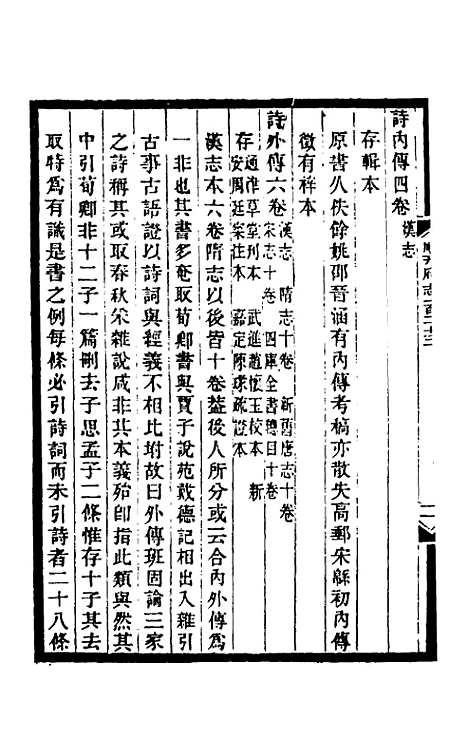 詩內傳四卷漢志
存輯本
原書久佚餘姚邵晉涵有內傳考稿亦散失高郵宋緜初內傳
徵有祥本
詩外傳六卷漢志 隋志十卷 新舊唐志十卷
宋志十卷 四庫全書總目十卷
存通津草堂刊本 武進趙懷玉校本 新
安周廷寀注本 嘉定陳瑑疏證本
漢志本六卷隋志以後皆十卷蓋後人所分或云合內外傳爲
一非也其書多奄取荀卿書與賈子說苑戴德記相出入雜引
古事古語證以詩詞與經義不相比坿故曰外傳班固論三家
之詩稱其或取春秋采雜說咸非其本義殆卽指此類與然其
中引荀卿非十二子一篇刪去子思孟子二條惟存十子其去
取特爲有識是書之例每條必引詩詞而未引詩者二十八條
順天府志一百二十三